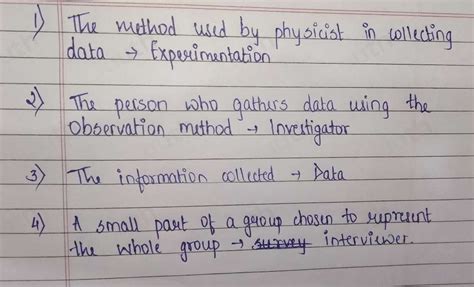 1) The method used by physicist in collecting
data → Experimentation
2) The person who gathers data using the
Observation method → Investigator
3) The information collected → Data
4) A small part of a group chosen to represent
the whole group → survey interviewer.